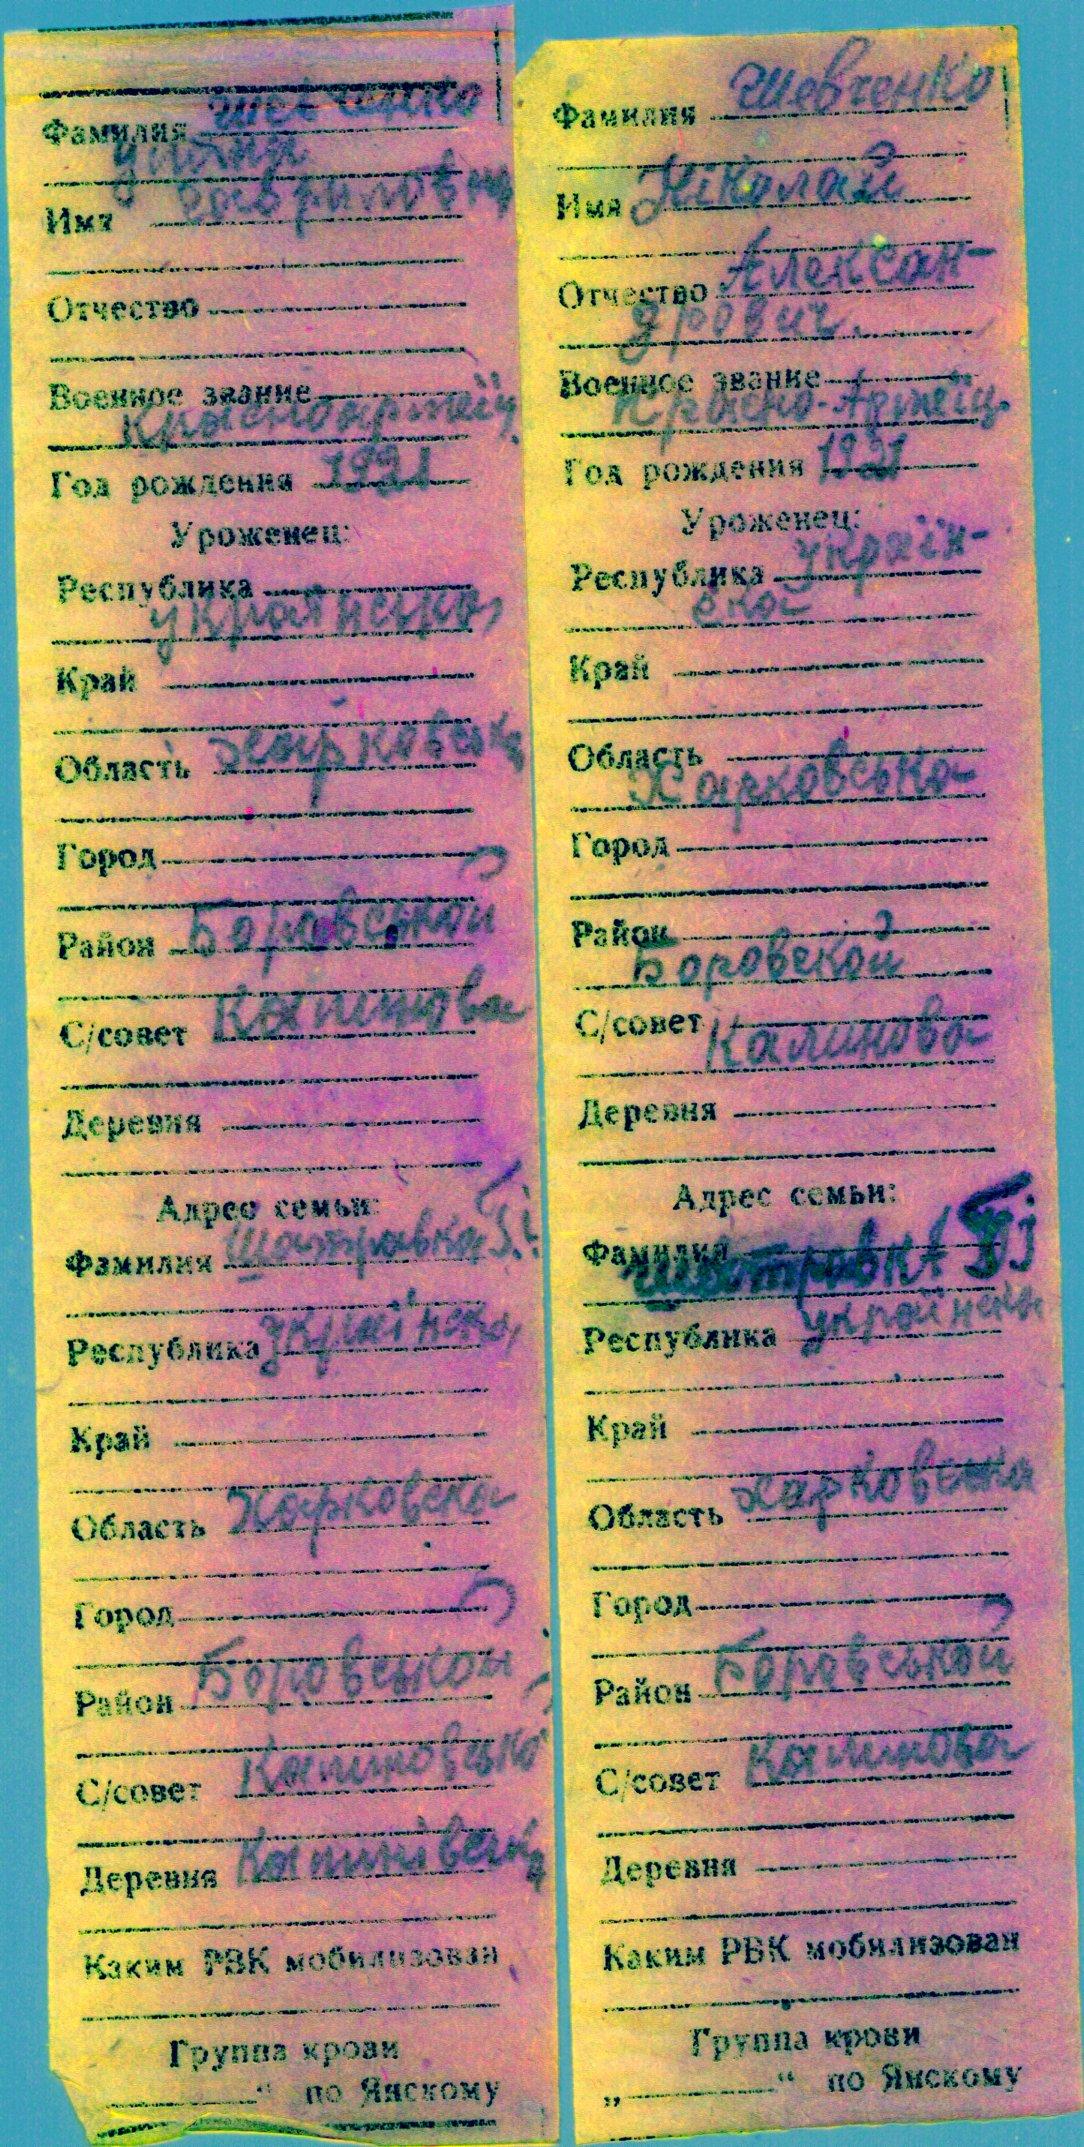 Фамилия Шевченко
Уляна
Имя Гавриловна
Отчество
Военное звание
Красноармейц.
Год рождения 1921
Уроженец:
Республика
украінська
Край
Область Харковська
Город
Район Боровський
С/совет Калинова
Деревня
Адрес семьи:
Фамилия Шатравка
Республика украінська
Край
Область Харковска
Город
Район Боровськой
С/совет Калиновсько
Деревня
Каким РВК мобилизован
Группа крови
“ по Янскому
Фамилия Шевченко
Имя Ніколай
Отчество Алексан-
дрович.
Военное звание
Красно-Армеіц.
Год рождения 1921
Уроженец:
Республика україн-
ска
Край
Область
Харковська
Город
Район
Боровской
С/совет
Калинова
Деревня
Адрес семьи:
Фамилия
Республика україньска
Край
Область харковська
Город
Район Боровськой
С/совет Калинова
Деревня
Каким РВК мобилизован
Группа крови
„ “ по Янскому